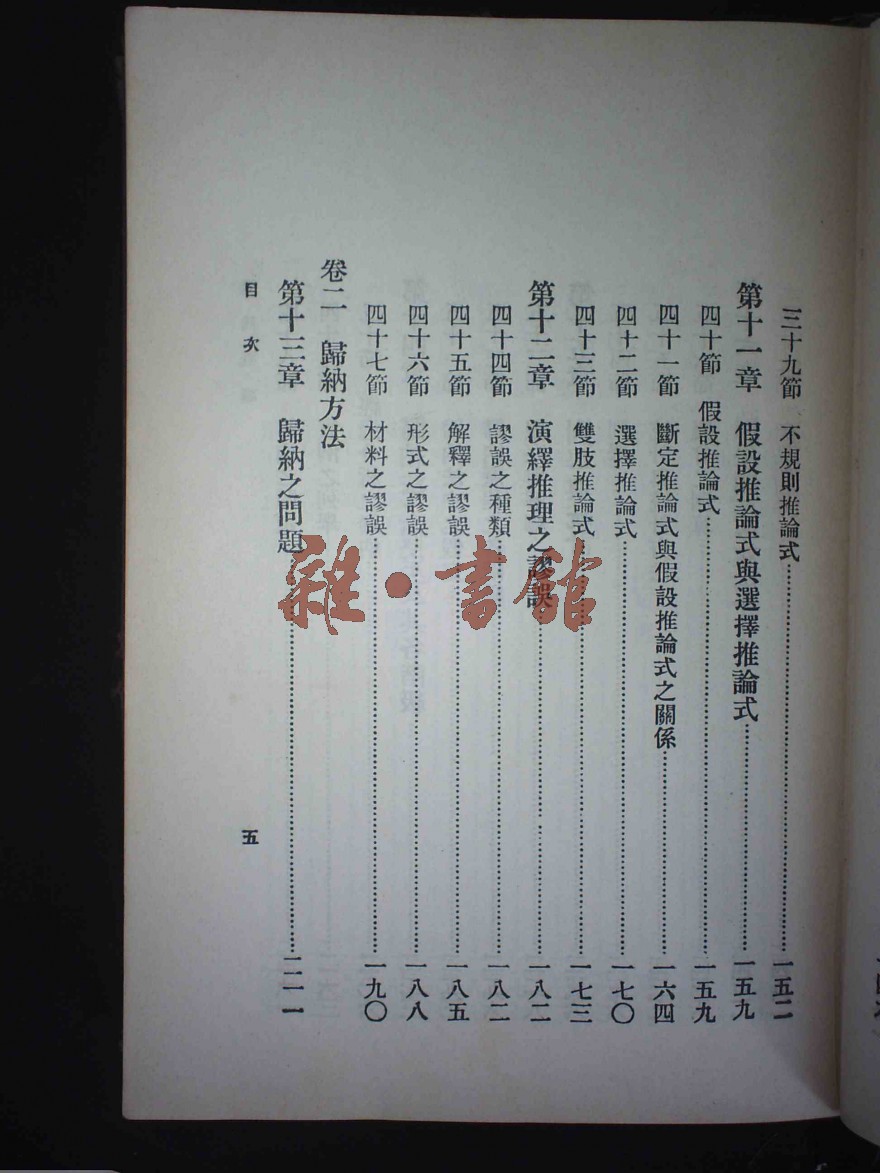 三十九節　不規則推論式……一五二
第十一章　假設推論式與選擇推論式……一五九
四十節　假設推論式……一五九
四十一節　斷定推論式與假設推論式之關係……一六四
四十二節　選擇推論式……一七〇
四十三節　雙肢推論式……一七三
第十二章　演繹推理之謬誤……一八二
四十四節　謬誤之種類……一八二
四十五節　解釋之謬誤……一八五
四十六節　形式之謬誤……一八八
四十七節　材料之謬誤……一九〇
卷二　歸納方法
第十三章　歸納之問題……二一一
目次　五
雜·書館